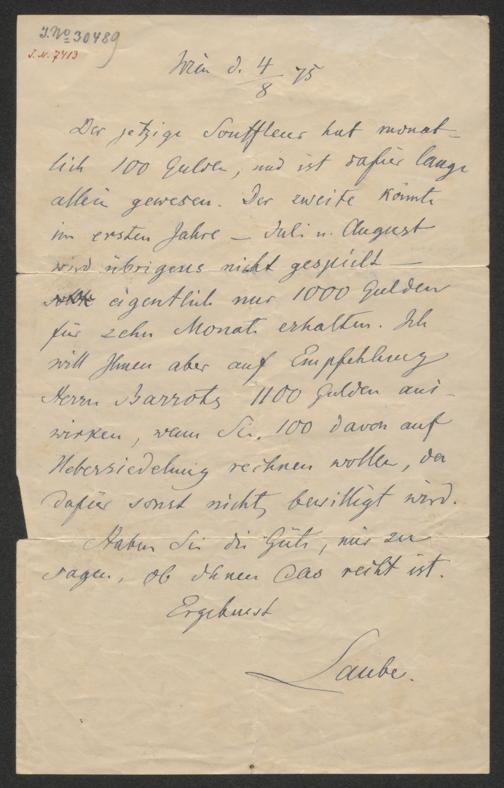 J. No 30489
J. N. 7413
Wien d. 4/8 75
Der jetzige Souffleur hat monat-
lich 100 Gulden, und ist dafür lange
allein gewesen. Der zweite könnte
im ersten Jahre – Juli u. August
wird übrigens nicht gespielt –
eigentlich nur 1000 Gulden
für zehn Monate erhalten. Ich
will Ihnen aber auf Empfehlung
Herrn 1100 Gulden aus-
wirken, wenn Sie, 100 davon auf
Uebersiedelung rechnen wollen, da
dafür sonst nichts bewilligt wird.
Haben Sie die Güte, mir zu
sagen, ob Ihnen Das recht ist.
Ergebenst
Laube.